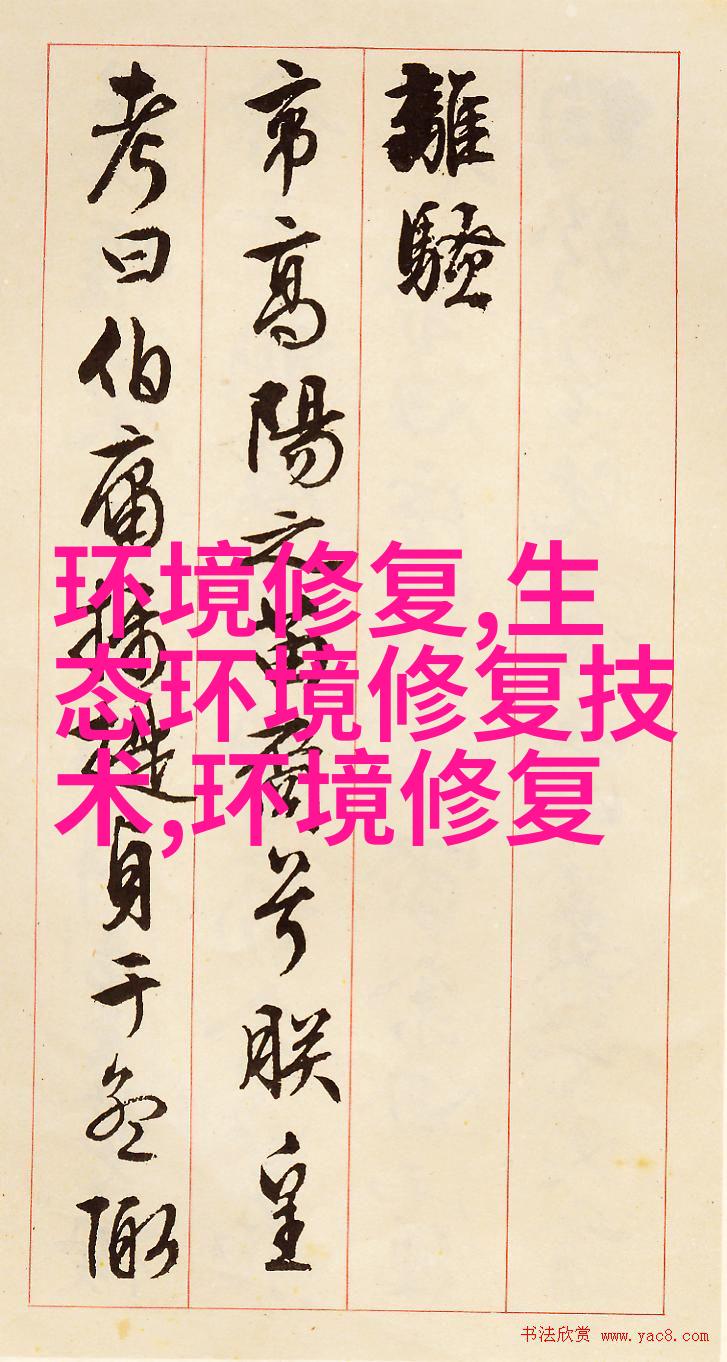 離騷
帝高陽之苗裔兮朕皇
考曰伯庸攝提貞于孟陬
环境修复,生
态环境修复技
术,环境修复
书法欣赏 www.yac8.com